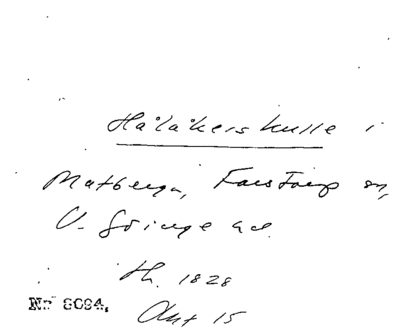 Hålåkerskulle i
Matberga, Farstorp sn,
V. Göinge hd.
th. 1828
Nr 8094.
Akt 15